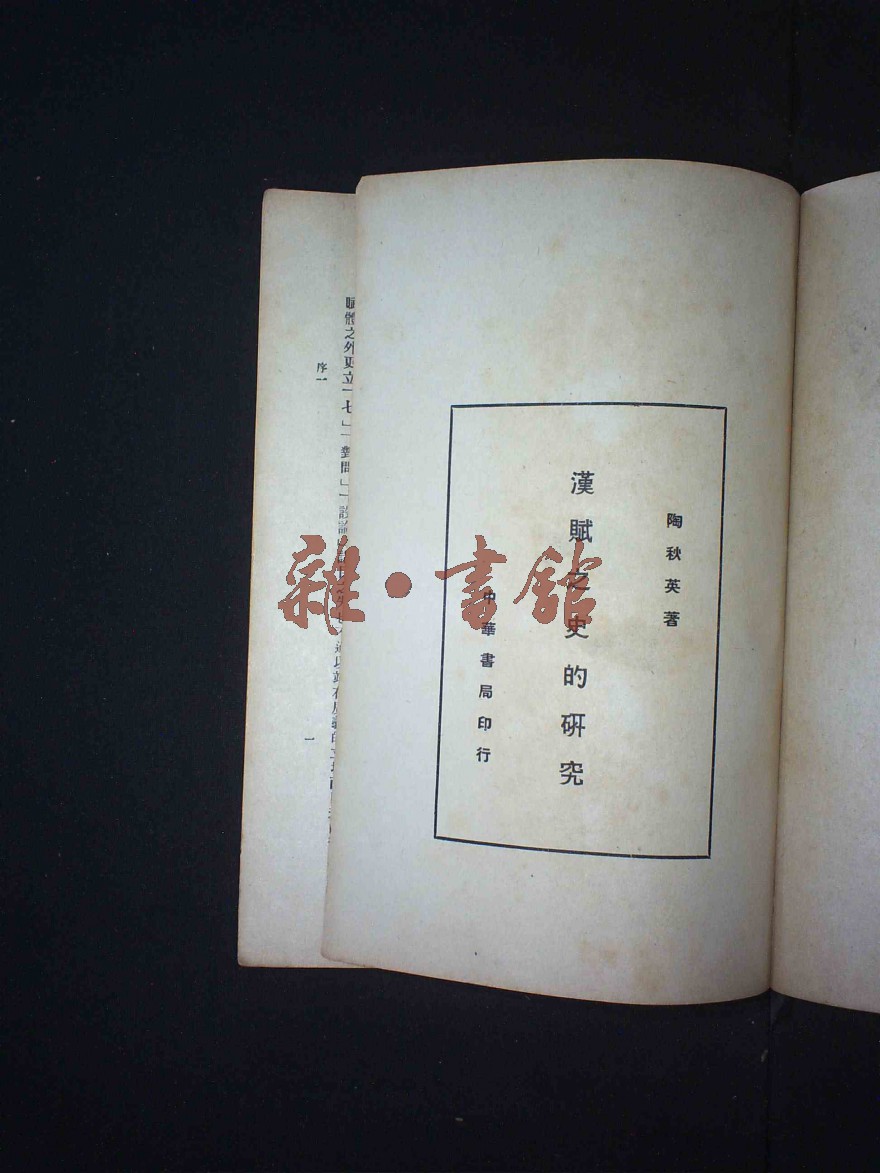 陶秋英著
漢賦之史的硏究
中華書局印行
賦體之外更立一七」一對問」一設論
序一
一
雜·書館